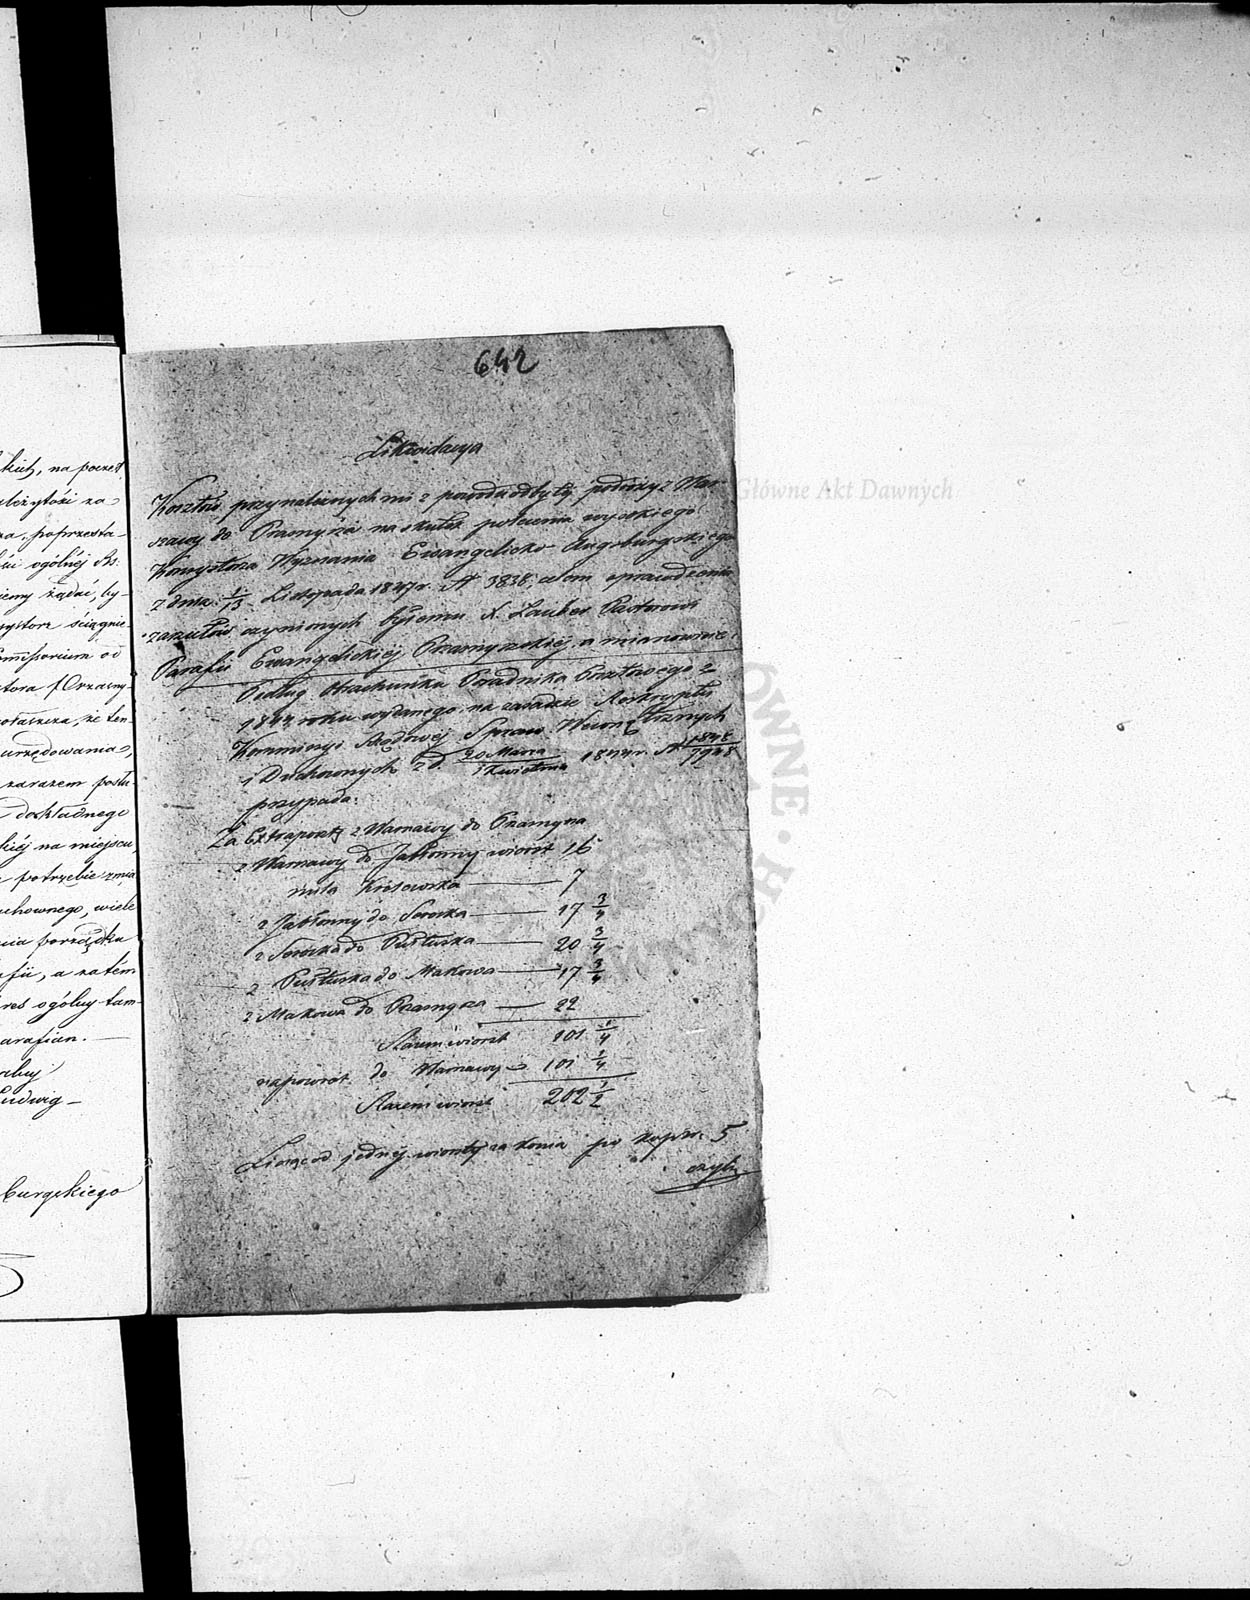 kich, na poczet
ależytości za
za, poprzesta-
lui ogólnéj Rs.
żądać, by-
systorz ściągnie-
Comissorium od
tora Przasny-
ogłaszcza, że ten-
urzędowania,
zarazem posłu-
dokładnego
kiéj na miejscu,
potrzebie zmia
uchownego, wiele
nia porządku
fii, a zatém
res ogólny tam-
arafian. —
Ludwig —
burgskiego
642
Likwidacya
Kosztów, przynależnych mi z powodu odbytéj podróży z War-
szawy do Przasnysza na skutek polecenia wysokiego
Konsystorza Wyznania Ewangelicko Augsburgskiego
z dnia 1/13 Listopada 1847 r. N 3838, celem sprawdzenia
zarzutów czynionych byłemu X. Lauber Pastorowi
Parafii Ewangelickiéj Przasnyszskiéj, a mianowicie:
Podług Obrachunku Poradnika Pocztowego z
1844 roku wydanego na zasadzie Reskryptu
Kommissyi Rządowéj Spraw Wewnętrznych
i Duchownych z d. 20 Marca/1 Kwietnia 1844 r. N 1848/7948
przypada:
Za Extrapocztę z Warszawy do Przasnysza
z Warszawy do Jabłonny wiorst 16
mila Królewska — 7
z Jabłonny do Serocka — 17 3/4
z Serocka do Pułtuska — 20 3/4
z Pułtuska do Makowa — 17 3/4
z Makowa do Przasnysza — 22
Razem wiorst 101 1/4
napowrót do Warszawy — 101 1/4
Razem wiorst 202 1/2
Licząc od jednéj wiorsty za konia po kopiek 5
czyli
Główne Akt Dawnych
ÓWNE · H